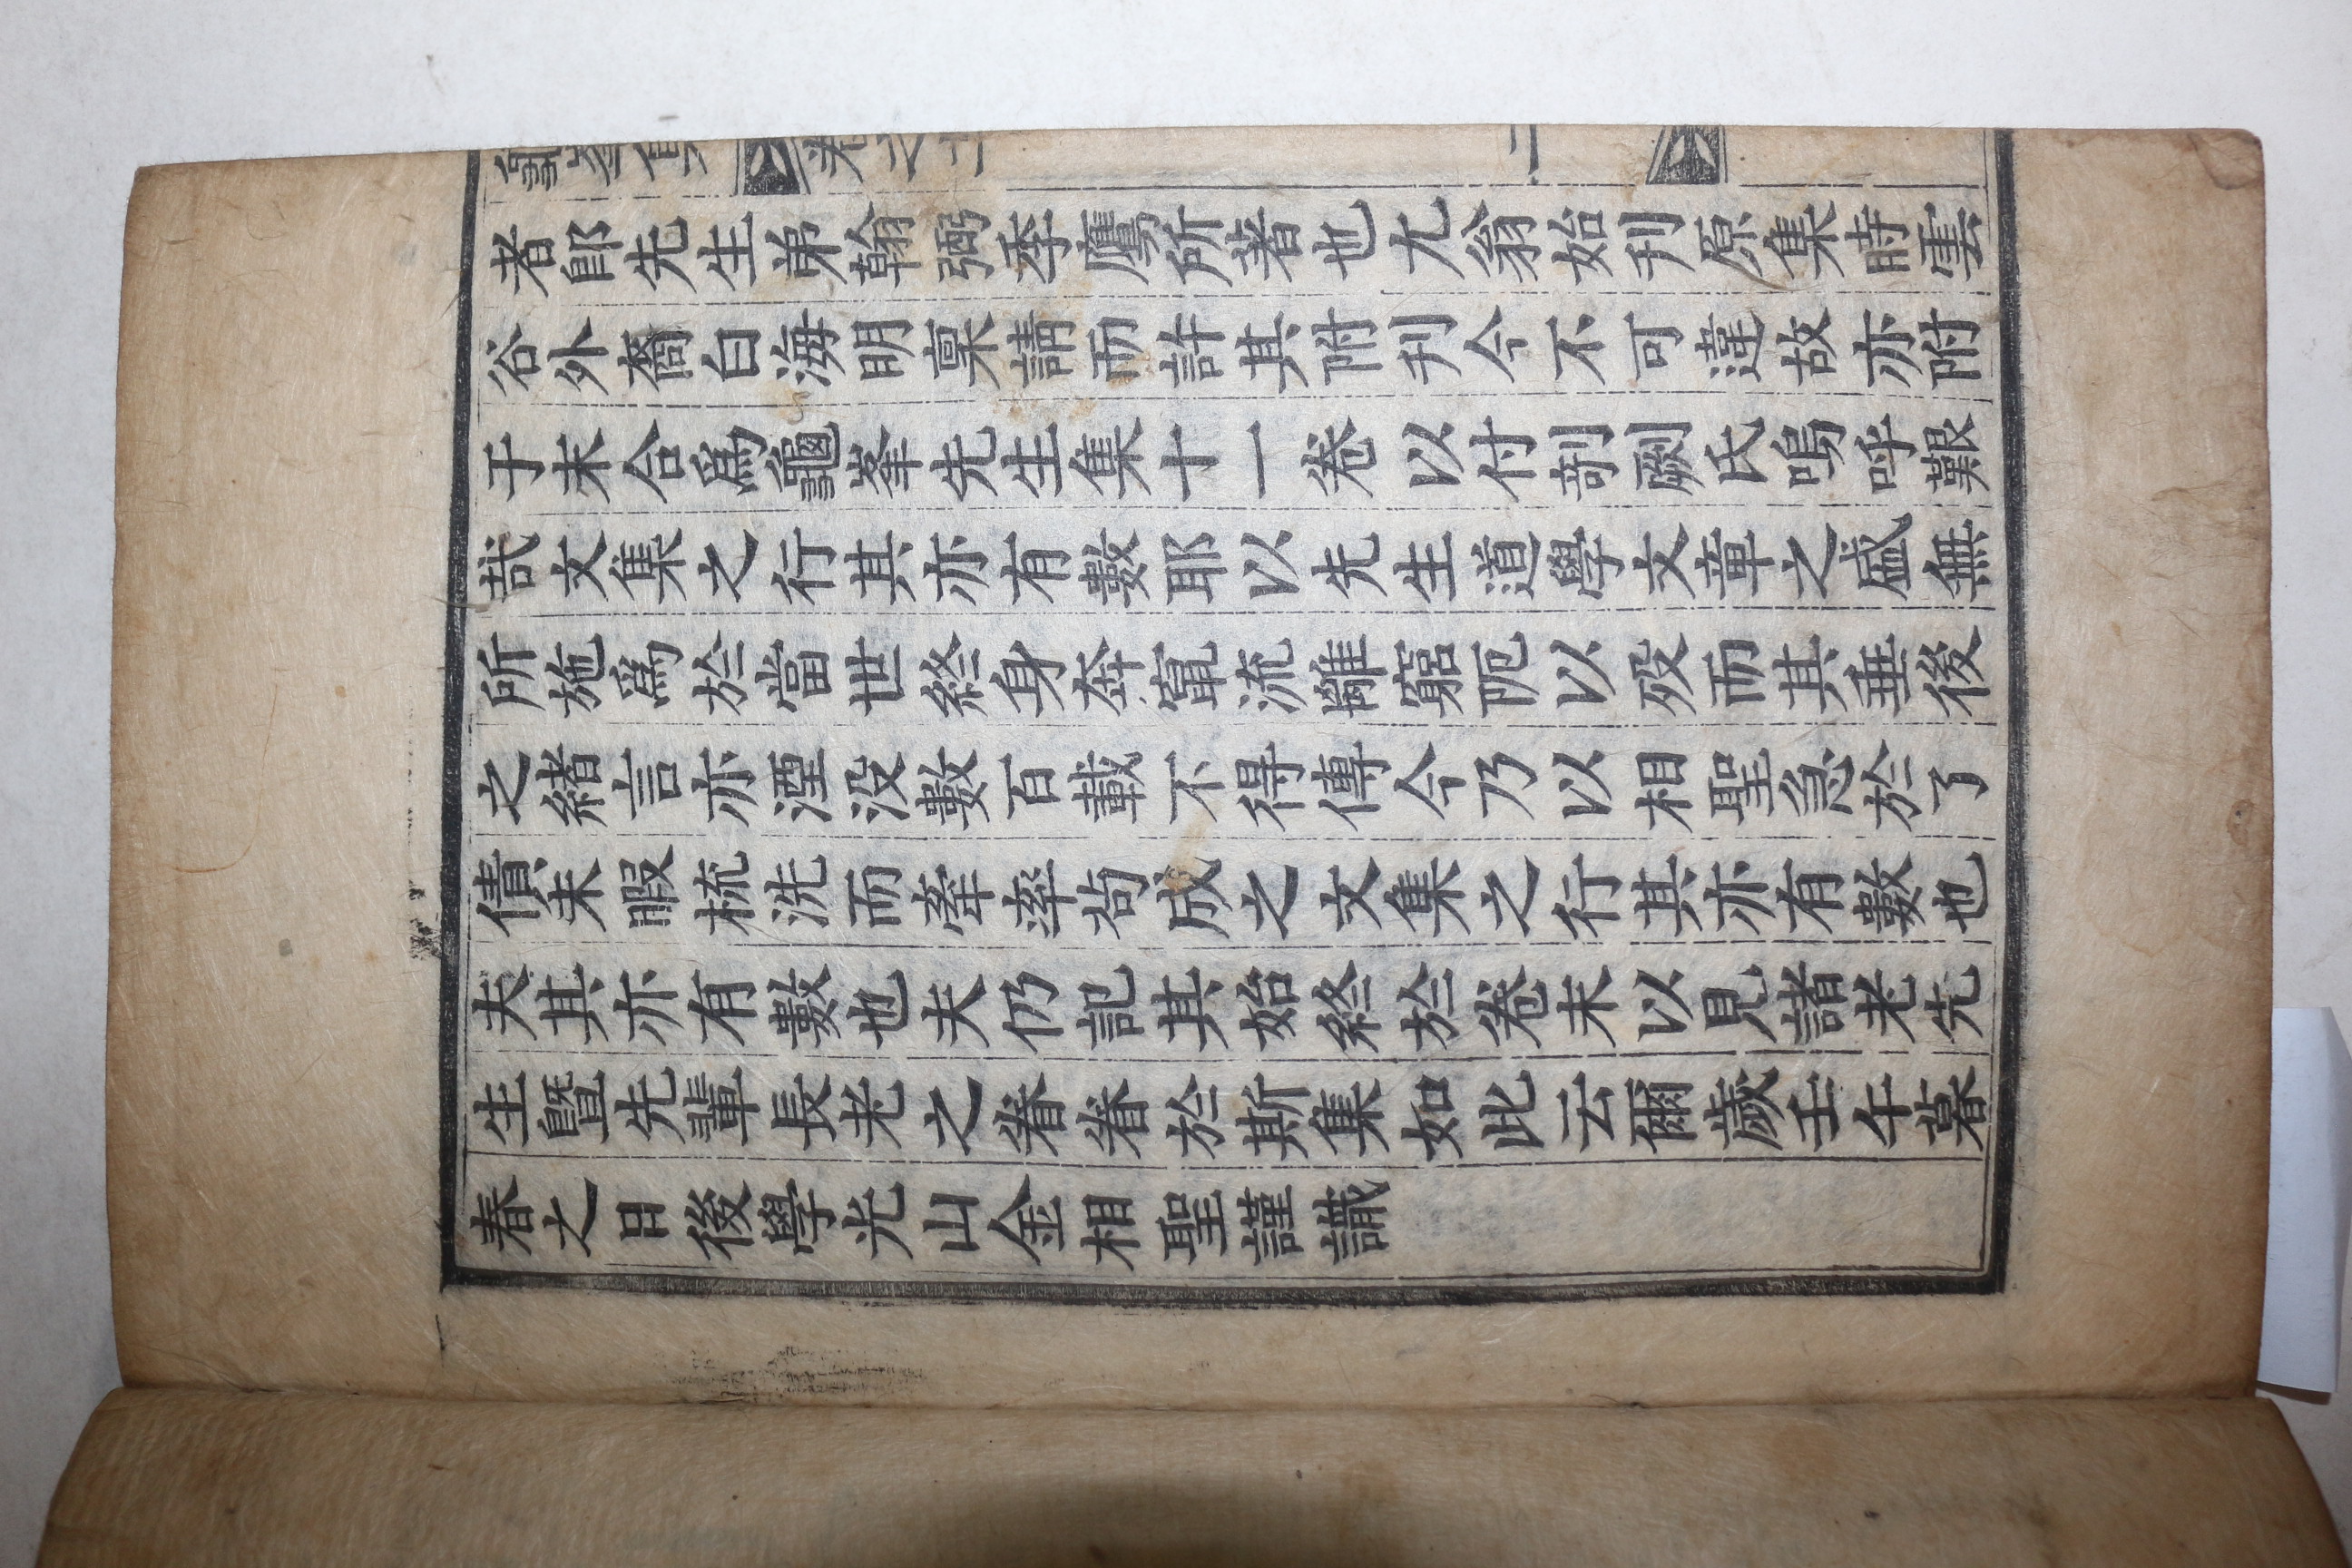 者卽先生弟翰弼季鷹所著也尤翁始刋原集時雲
谷外裔白海明稟請而許其附刋今不可違故亦附
于末合爲龜峯先生集十一卷以付剞劂氏嗚呼艱
哉文集之行其亦有數耶以先生道學文章之盛無
所施爲於當世終身奔竄流離窮阨以歿而其垂後
之緖言亦湮沒數百載不得傳今乃以相聖急於了
債未暇梳洗而牽率苟成之文集之行其亦有數也
夫其亦有數也夫仍記其始終於卷末以見諸老先
生曁先輩長老之眷眷於斯集如此云爾歲壬午暮
春之日後學光山金相聖謹識